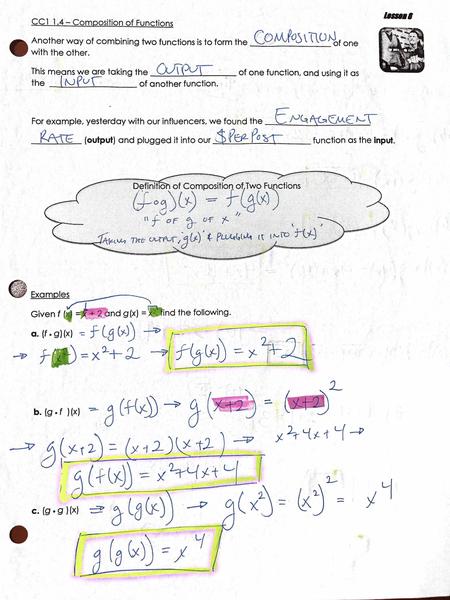 CC1 1.4 – Composition of Functions
Lesson 6
Another way of combining two functions is to form the COMPOSITION of one
with the other.
This means we are taking the OUTPUT of one function, and using it as
the INPUT of another function.
For example, yesterday with our influencers, we found the ENGAGEMENT
RATE (output) and plugged it into our $PERPOST function as the input.
Definition of Composition of Two Functions
(fog)(x) = f(g(x))
"f OF g OF x"
TAKING THE OUTPUT, g(x) & PLUGGING IT INTO 'f(x)'
Examples
Given f(x) = x + 2 and g(x) = x² find the following.
a. (f ∘ g)(x) = f(g(x)) →
→ f(x²) = x² + 2 → f(g(x)) = x² + 2
b. (g ∘ f)(x) = g(f(x)) → g(x+2) = (x+2)²
→ g(x+2) = (x+2)(x+2) → x²+4x+4 →
g(f(x)) = x²+4x+4
c. (g ∘ g)(x) ⇒ g(g(x)) → g(x²) = (x²)² = x⁴
g(g(x)) = x⁴